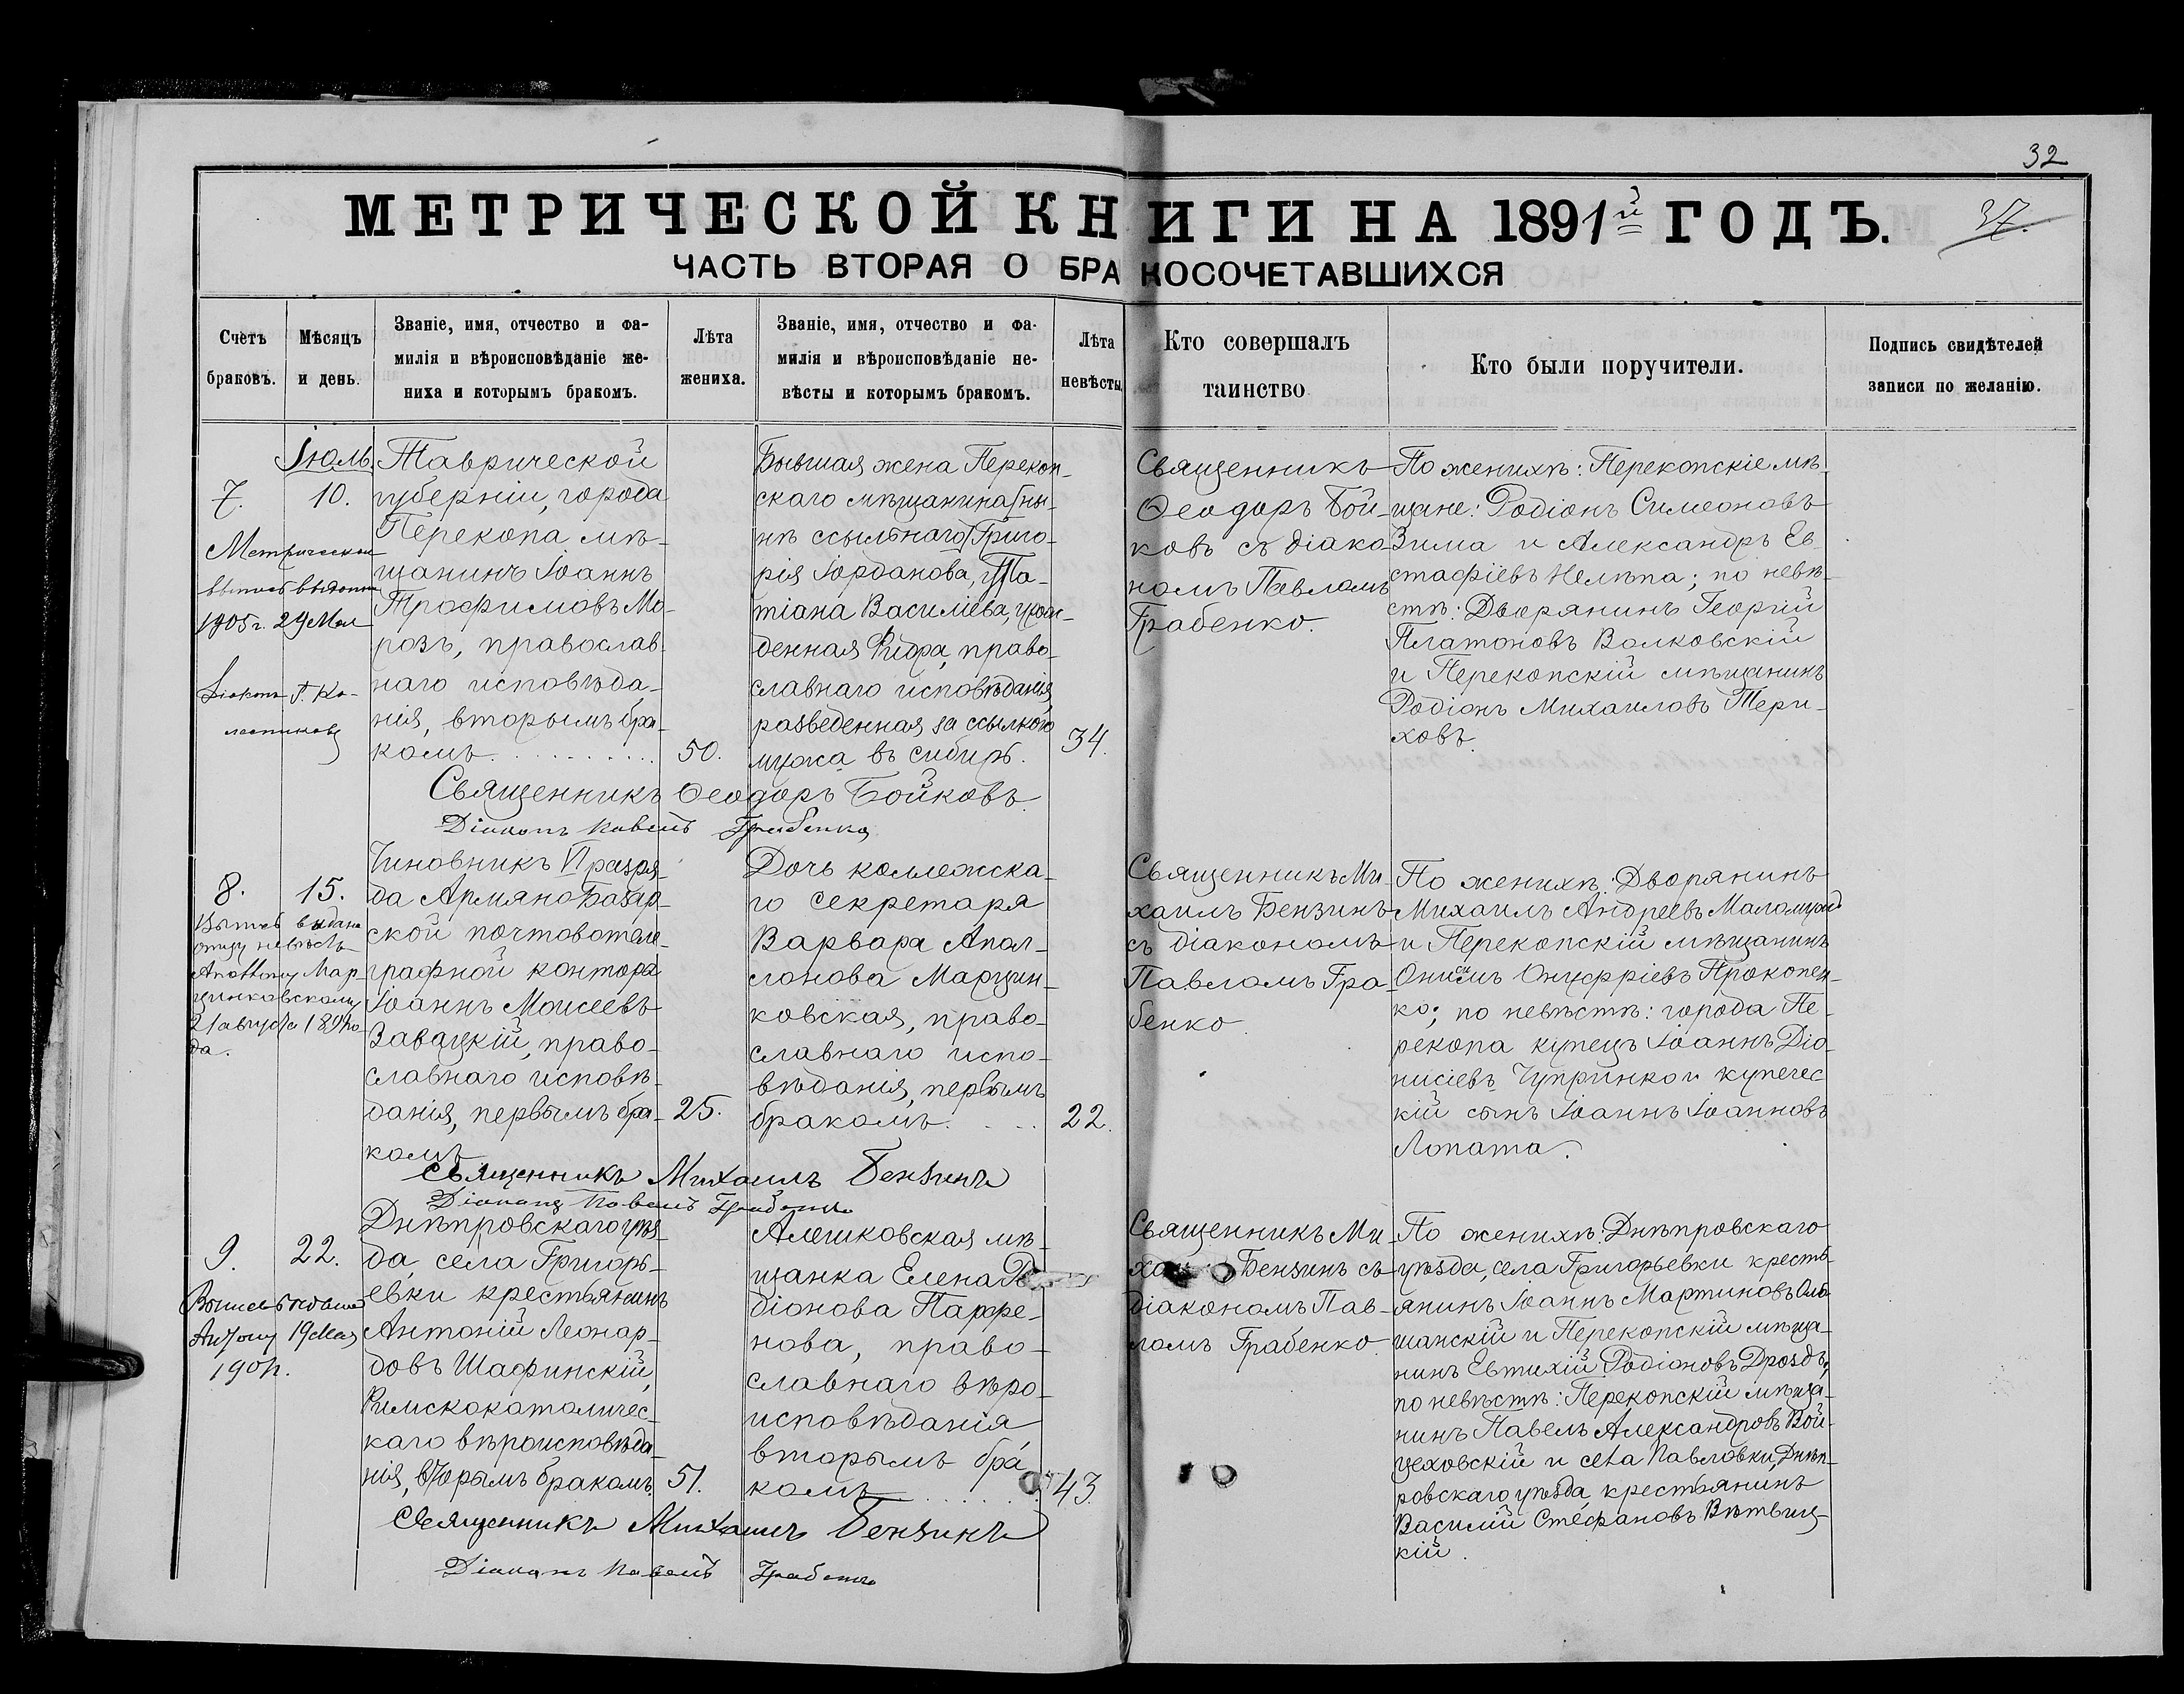 32
МЕТРИЧЕСКОЙ КНИГИ НА 1891й ГОДЪ.
37.
ЧАСТЬ ВТОРАЯ О БРАКОСОЧЕТАВШИХСЯ
Счетъ
браковъ.
Мѣсяцъ
и день.
Званіе, имя, отчество и фа-
милія и вѣроисповѣданіе же-
ниха и которымъ бракомъ.
Лѣта
жениха.
Званіе, имя, отчество и фа-
милія и вѣроисповѣданіе не-
вѣсты и которымъ бракомъ.
Лѣта
невѣсты.
Кто совершалъ
таинство
Кто были поручители.
Подпись свидѣтелей
записи по желанію.
7.
Іюль.
10.
1905 г. 29 Мая
Діаконъ
Таврической
губерніи, города
Перекопа мѣ-
щанинъ Іоаннъ
Трофимовъ Мо-
розъ, православ-
наго исповѣда-
нія, вторымъ бра-
комъ.
50.
Бывшая жена Перекоп-
скаго мѣщанина (ны-
нѣ ссыльнаго) Григо-
рія Іорданова, Та-
тіана Василіева, урож-
денная право-
славнаго исповѣданія,
разведенная за ссылкою
мужа въ сибирь.
34.
Священникъ
Ѳеодоръ Бой-
ковъ съ діако-
номъ Павломъ
Грабенко.
По женихѣ: Перекопскіе мѣ-
щане: Родіонъ Симеоновъ
Зима и Александръ Ев-
стафіевъ Нелѣпа; по невѣ-
стѣ: Дворянинъ Георгій
Платоновъ Волковскій
и Перекопскій мѣщанинъ
Родіонъ Михаиловъ Тери-
ховъ.
Священникъ Ѳеодоръ Бойковъ.
Діаконъ Павелъ Грабенко
8.
15.
Выпись выдана
отцу невѣсты
Мар-
цинковскому
21 августа
да.
Чиновникъ VI разря-
да Армяно Базар-
ской почтовотеле-
графной конторы
Іоаннъ Моисеевъ
Завацкій, право-
славнаго исповѣ-
данія, первымъ бра-
комъ
25.
Дочь коллежска-
го секретаря
Варвара Апол-
лонова Марцин-
ковская, право-
славнаго испо-
вѣданія, первымъ
бракомъ.
22.
Священникъ Ми-
хаилъ Бензинъ
съ діакономъ
Павломъ Гра-
бенко
По женихѣ: Дворянинъ
Михаилъ Андреевъ
и Перекопскій мѣщанинъ
Онисимъ Онуфріевъ Прокопен-
ко; по невѣстѣ: города Пе-
рекопа купецъ Іоаннъ Діо-
нисіевъ Чупринко и купечес
кій сынъ Іоаннъ Іоанновъ
Лопата.
Священникъ Михаилъ Бензинъ
Діаконъ Павелъ Грабенко
9.
22.
19 Мая
Днѣпровскаго уѣз-
да, села Григорь-
евки крестьянинъ
Антоній Леонар-
довъ Шафинскій,
Римскокатоличес-
каго вѣроисповѣда-
нія, вторымъ бракомъ.
51.
Алешковская мѣ-
щанка Елена Ро-
діонова Парфе-
нова, право-
славнаго вѣро-
исповѣданія
вторымъ бра
комъ
43.
Священникъ Ми-
Бензинъ съ
діакономъ Пав-
ломъ Грабенко.
По женихѣ: Днѣпровскаго
уѣзда, села Григорьевки кресть-
янинъ Іоаннъ Мартиновъ
шанскій и Перекопскій мѣща-
нинъ Евтихій Родіоновъ Дроздъ,
по невѣстѣ: Перекопскій мѣща-
нинъ Павелъ Александровъ Вой-
цеховскій и села Павловки, Днѣп-
ровскаго уѣзда крестьянинъ
Василій Стефановъ Вѣтвиц-
кій.
Священникъ Михаилъ Бензинъ
Діаконъ Павелъ Грабенко